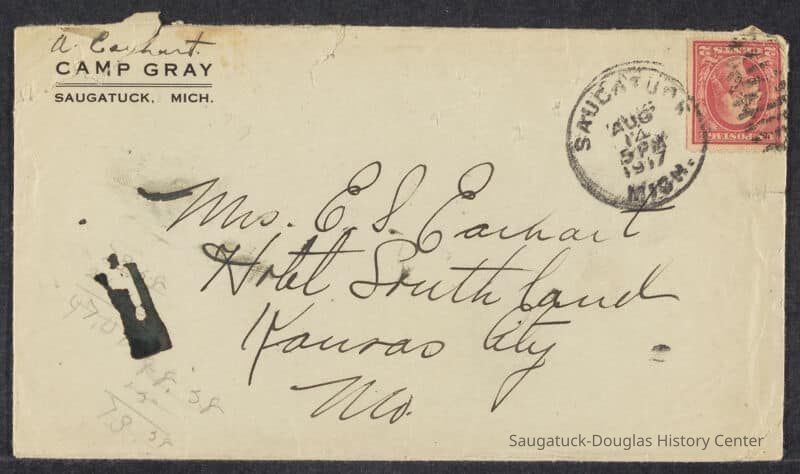 A. Earhart.
CAMP GRAY
SAUGATUCK, MICH.
SAUGATUCK
AUG
14
5 PM
1917
MICH.
Mrs. E. S. Earhart
Hotel Southland
Kansas City
Mo.
Saugatuck-Douglas History Center